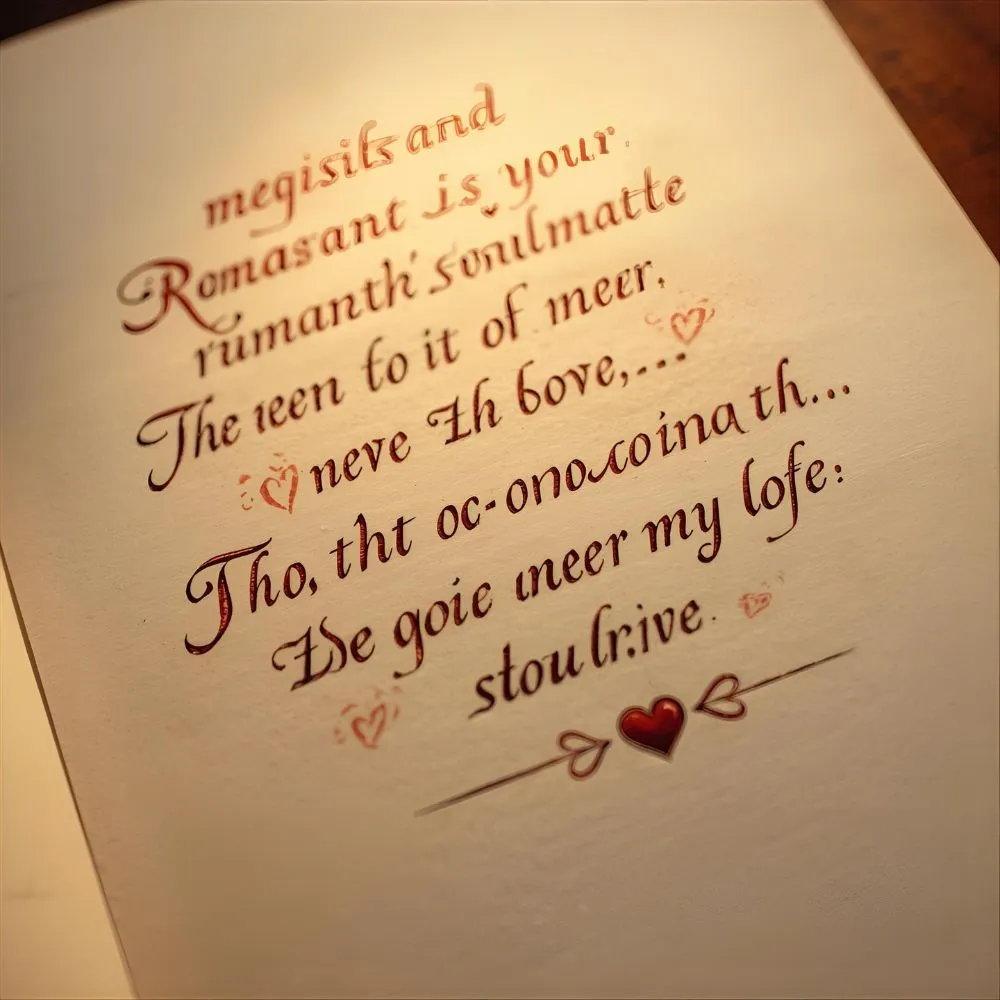 megisils and
Romasant is your
rumanth' sonulmatte
The ieen to it of meer.
neve Th bove,...
Tho, tht oc-ono.coina th...
De goie ineer my lofe:
stou lr.ive.